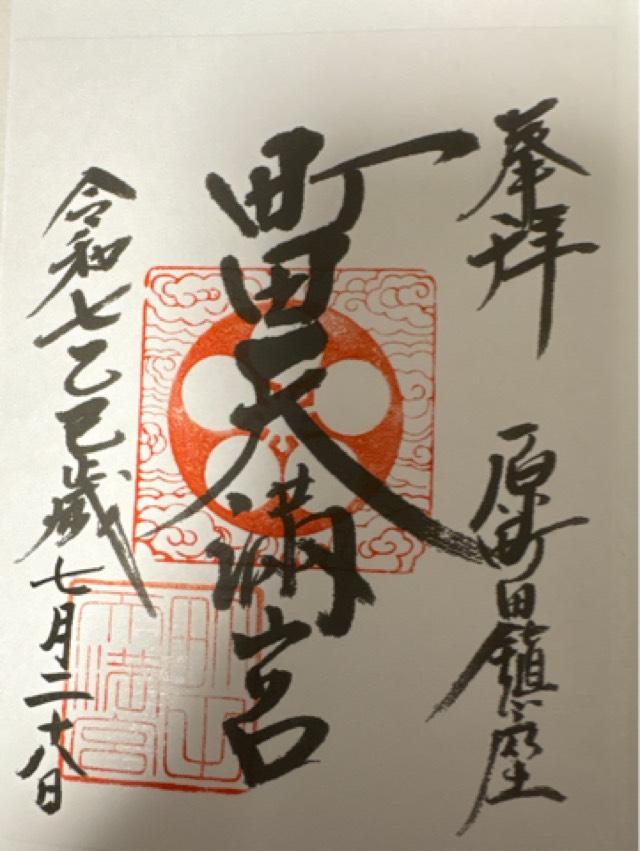 奉拝
原町田鎮座
町田天満宮
令和七乙巳歳七月二十八日